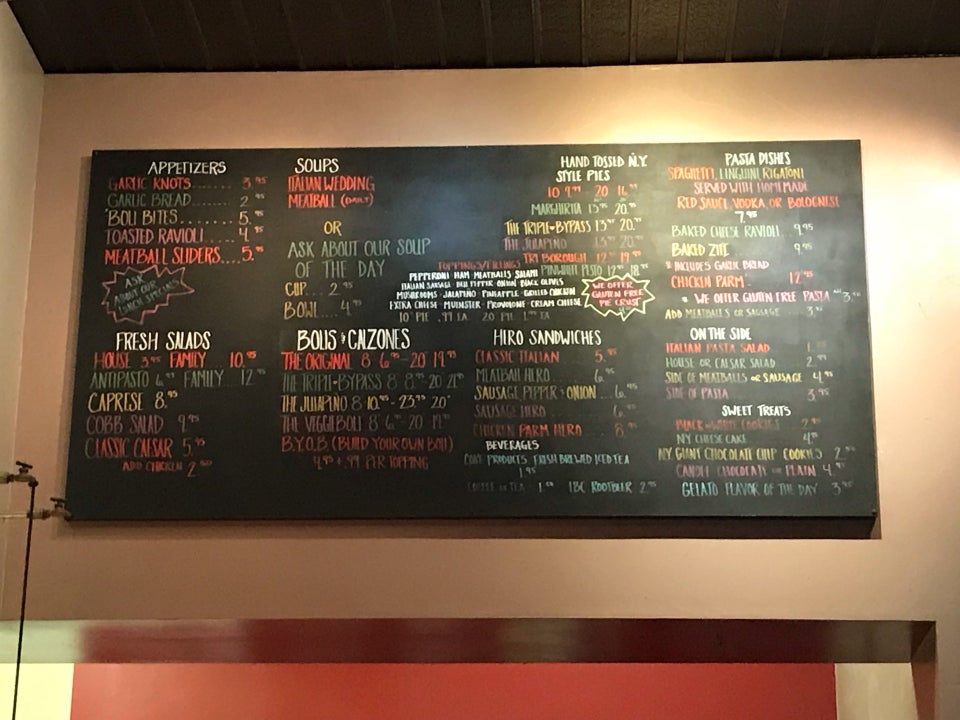 APPETIZERS
GARLIC KNOTS....... 3.95
GARLIC BREAD....... 2.95
'BOLI BITES......... 5.95
TOASTED RAVIOLI.... 4.95
MEATBALL SLIDERS.... 5.95
ASK
ABOUT OUR
LUNCH SPECIALS
SOUPS
ITALIAN WEDDING
MEATBALL (DAILY)
OR
ASK ABOUT OUR SOUP
OF THE DAY
CUP... 2.95
BOWL... 4.95
HAND TOSSED N.Y
STYLE PIES
10 9.99 20 16.99
MARGHIRITA 13.95 20.95
THE TRIPLE-BYPASS 13.95 20.95
THE JULAPINO 13.95 20.95
TRI BOROUGH 12.95 19.95
PINWHIR PESTO 12.95 18.95
TOPPINGS/FILLINGS
PEPPERONI HAM MEATBALLS SALAMI
ITALIAN SAUSAGE BELL PEPPER ONION BLACK OLIVES
MUSHROOMS JALAPINO PINEAPPLE GRILLED CHICKEN
EXTRA CHEESE MUENSTER PROVOLONE CREAM CHEESE
10" PIE .99 EA 20 PIE 1.99 EA
WE OFFER
GLUTEN FREE
PIE CRUST
PASTA DISHES
SPAGHETTI, LINGUINI, RIGATONI
SERVED WITH HOMEMADE
RED SAUCE, VODKA, OR BOLOGNESE
7.95
BAKED CHEESE RAVIOLI.. 9.95
BAKED ZITI 9.95
* INCLUDES GARLIC BREAD
CHICKEN PARM 12.95
* WE OFFER GLUTEN FREE PASTA
ADD MEATBALLS OR SAUSAGE
FRESH SALADS
HOUSE 3.95 FAMILY 10.95
ANTIPASTO FAMILY... 12.95
CAPRESE 8.95
COBB SALAD 9.95
CLASSIC CAESAR 5.95
ADD CHICKEN 2
BOLIS & CALZONES
THE ORIGINAL 8 6.95 - 20 19.95
THE TRIPLE-BYPASS 8 8.95 - 20 21.95
THE JULAPINO 8 10.95 - 23.95 20"
THE VEGGIEBOLI 8 6.95 - 20 19.95
B.Y.O.B (BUILD YOUR OWN BOLI)
4.95 + .99 PER TOPPING
HIRO SANDWICHES
CLASSIC ITALIAN 5.95
MEATBALL HERO... 6.95
SAUSAGE, PEPPER & ONION... 6.95
SAUSAGE HERO 6.95
CHICKEN PARM HERO 8.95
BEVERAGES
COKE PRODUCTS, FRESH BREWED ICED TEA
1.95
COFFEE OR TEA IBC ROOTBEER 2.95
ON THE SIDE
ITALIAN PASTA SALAD
HOUSE OR CAESAR SALAD
SIDE OF MEATBALLS OR SAUSAGE 4.95
SIDE OF PASTA 3.95
SWEET TREATS
BLACK & WHITE COOKIES 2.95
NY CHEESE CAKE
NY GIANT CHOCOLATE CHIP COOKIES
CANOLI CHOCOLATE OR PLAIN 4.95
GELATO FLAVOR OF THE DAY 3.95